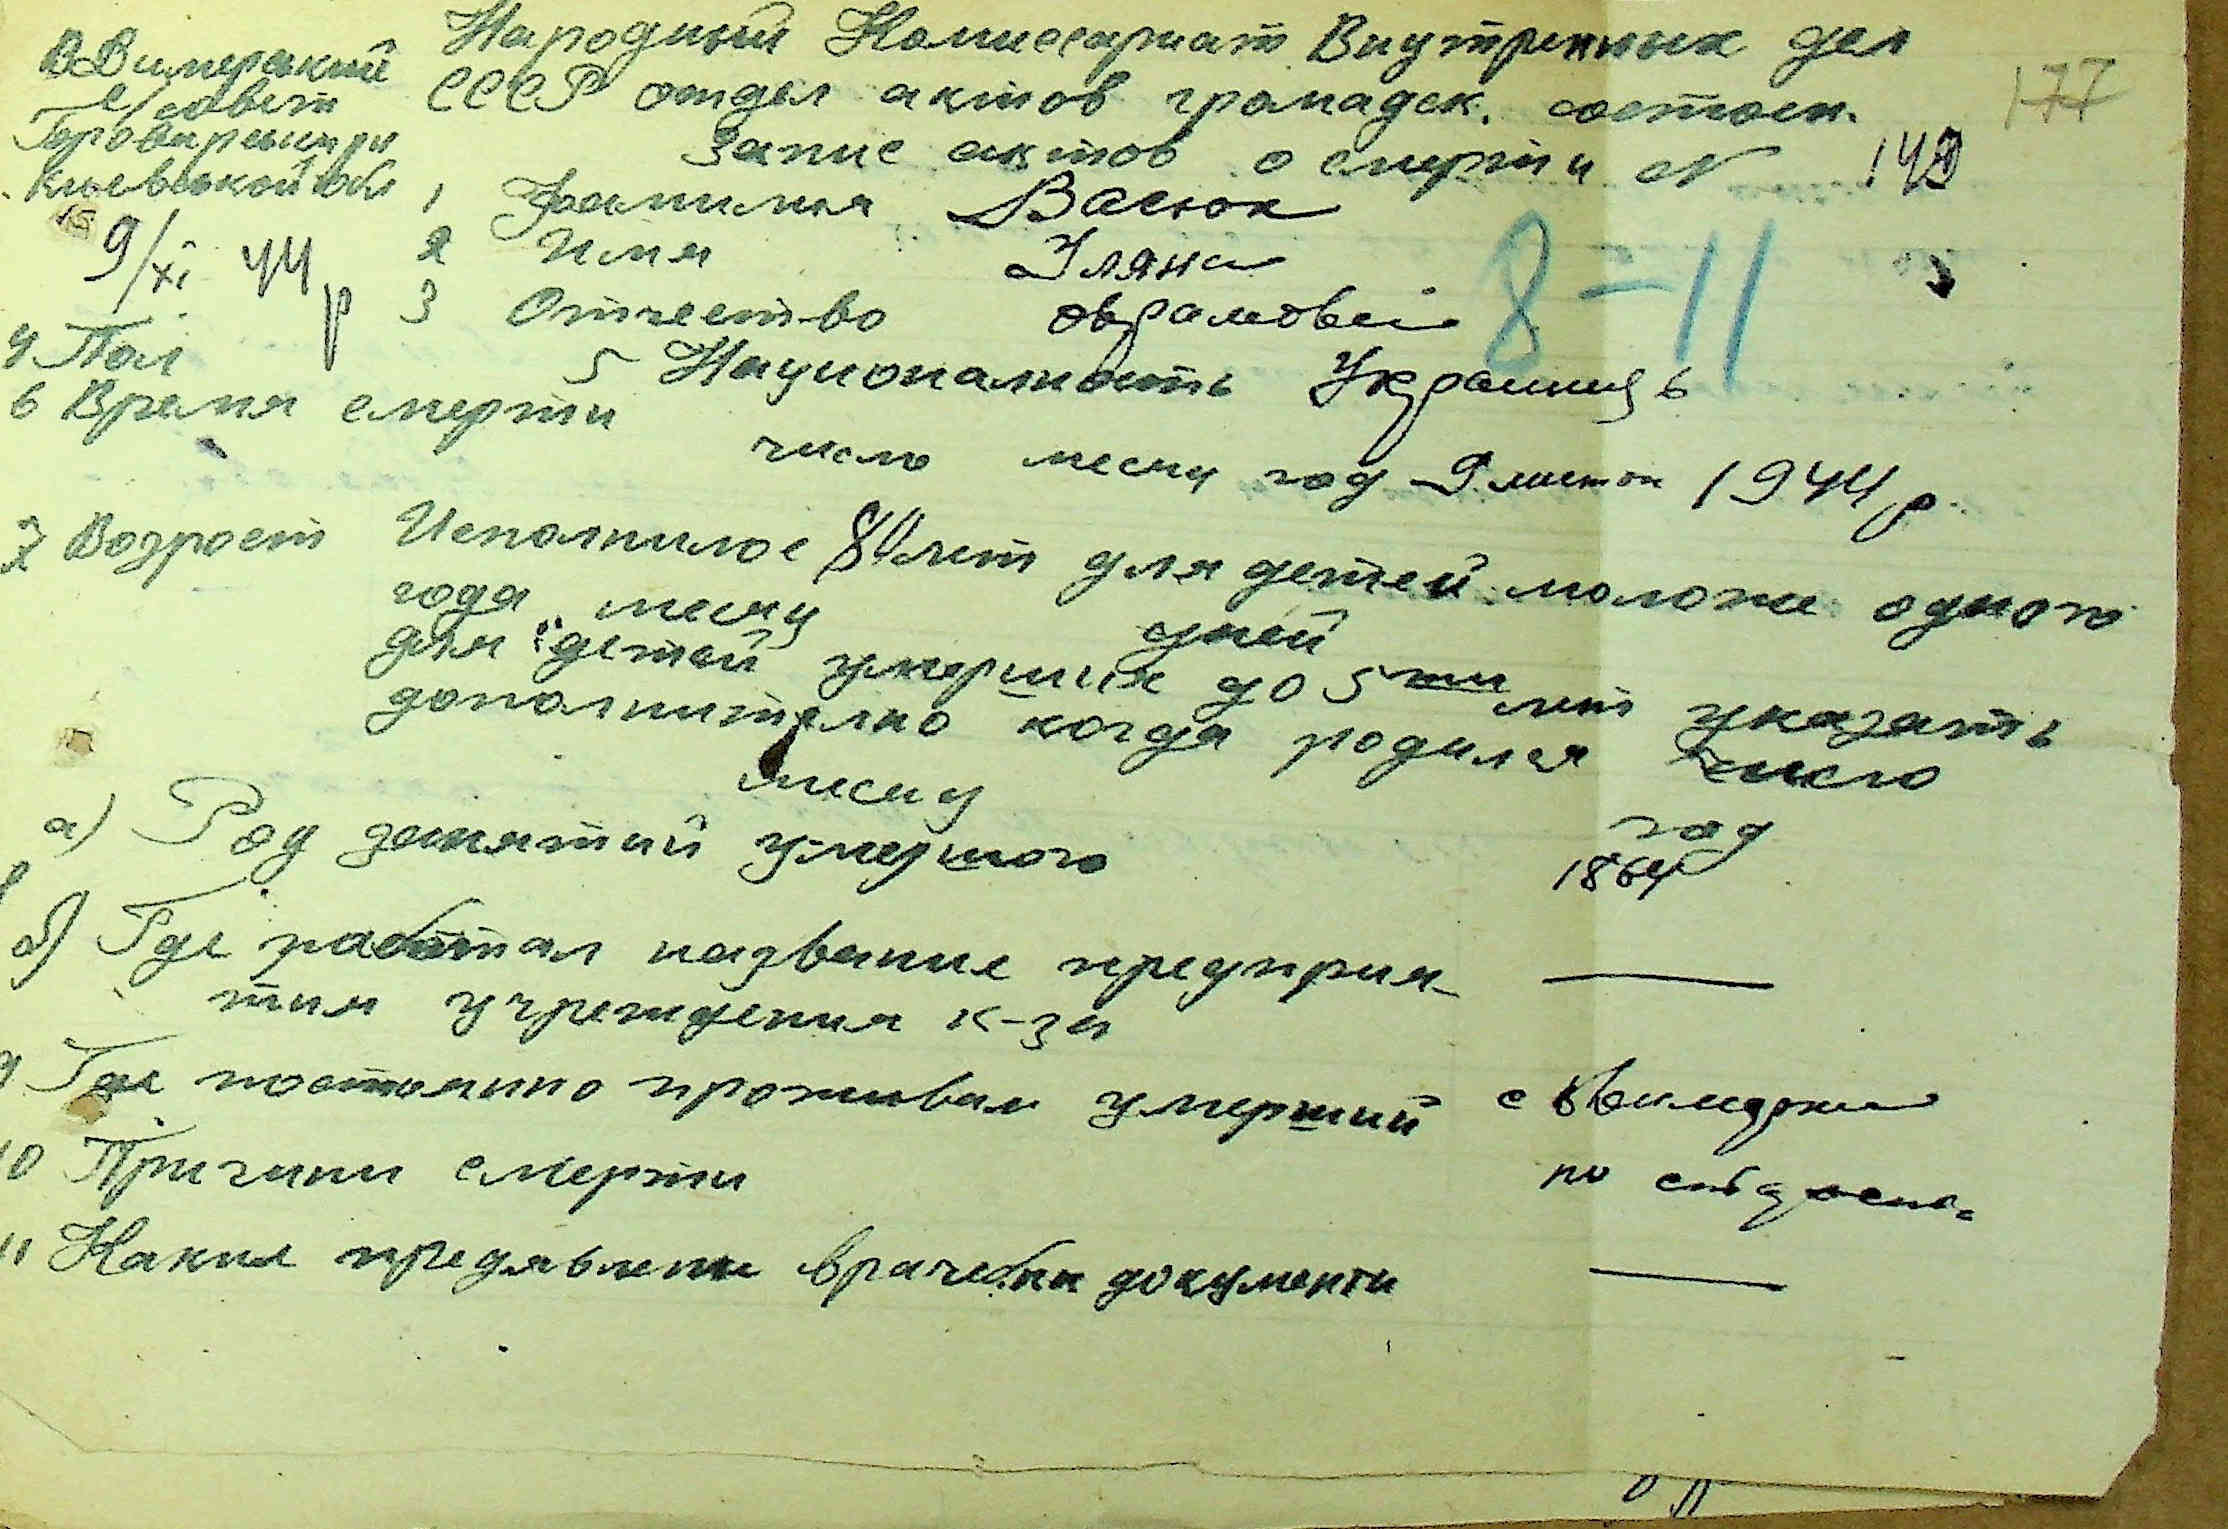 В Димерський
с/совет
Київської обл
9/XI 44 р
Народний Комиссариат Внутренных дел
СССР отдел актов громадск. состоен.
177
Запис актов о смерти №
1 Фамилия Васюк
2 Имя Уляна
3 Отчество
8-11
4 Пол
5 Национальность Украинец
6 Время смерти
число месяц год 9 листоп 1944 р.
7 Возраст Исполнилос 80 лет для детей моложе одного
года месяц дней
для детей умерших до 5 ти лет указать
дополнително когда родился число
месяц
год
1864
а) Род занятий умершого
б) Где работал название предприя-
тия учреждения к-за
9 Где постоянно проживал умерший с
10 Причини смерти по
11 Какие предявлени врачебни документи